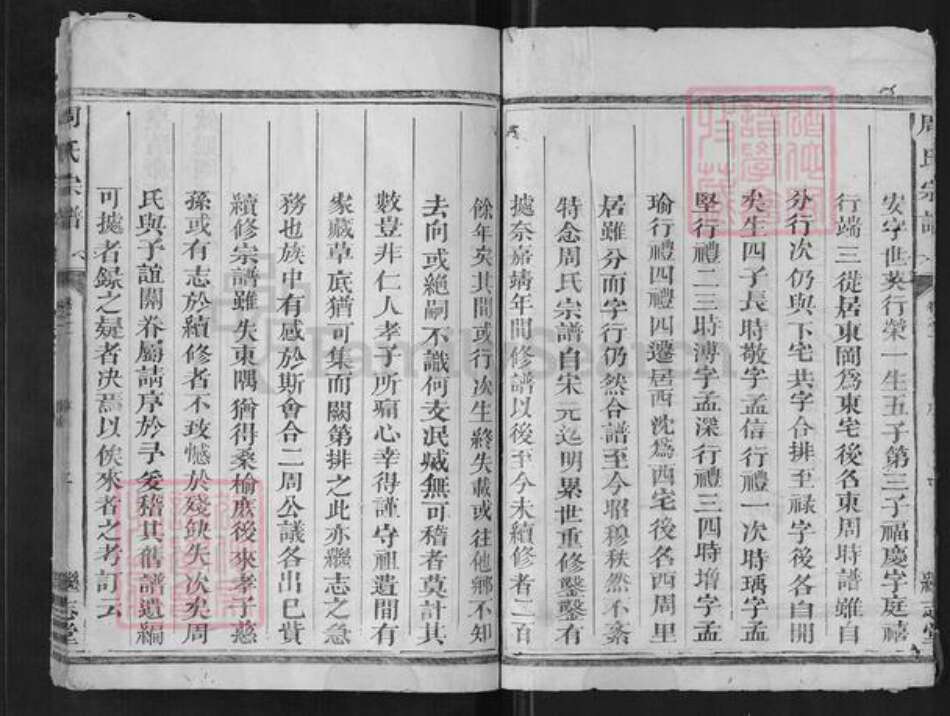 周氏宗譜
宏字世英行榮一生五子第三子福慶字庭禧
行端三徙居東岡為東宅後名東周時譜雖自
分行次仍與下宅共字合排至祿字後各自開
矣生四子長時敬字孟信行禮一次時瑀字孟
堅行禮二三時溥字孟深行禮三四時增字孟
瑜行禮四禮四遷居西沈為西宅後名西周里
居雖分而字行仍然合譜至今昭穆秩然不紊
特念周氏宗譜自宋元迄明累世重修鑿鑿有
據奈嘉靖年間修譜以後至今未續修者二百
餘年矣其間或行次生終失載或往他鄉不知
去向或絕嗣不識何支泯滅無可稽者莫計其
數豈非仁人孝子所痛心幸得謹守祖遺間有
家藏草底猶可集而闕第排之此亦繼志之急
務也族中有感於斯會合二周公議各出己貲
續修宗譜雖失東隅猶得桑榆庶後來孝子慈
孫或有志於續修者不致憾於殘缺失次矣周
氏與予誼關眷屬請序於予爰稽其舊譜遺編
可據者錄之疑者決焉以俟來者之考訂云
周氏宗譜
繼志堂